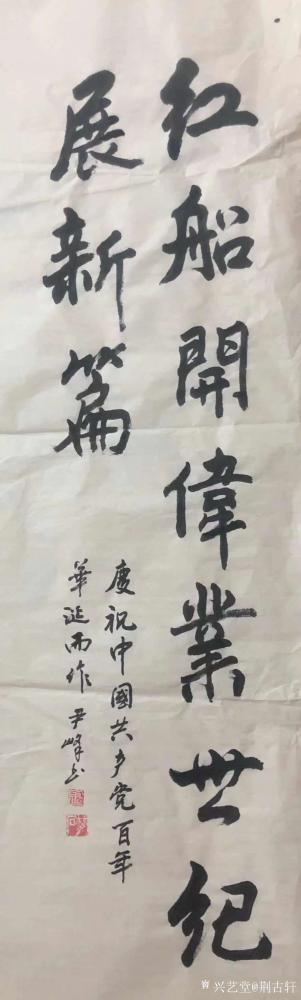 红船開偉業世紀
展新篇
慶祝中國共产党百年
華诞而作 尹峰书
兴艺堂@荆古轩